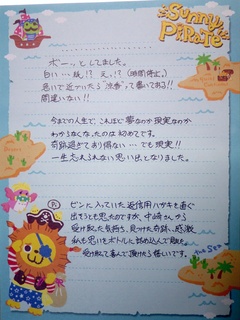 Sunny PiRATE
..................
ボーッとしてました。
白い…紙!? え。!? (時間停止。)
急いで近づいたら"渋香"って書いてある!!
間違いない!!
今までの人生で、これほど夢なのか現実なのか
わからなくなったのは初めてです。
奇跡過ぎてあり得ない…でも現実!!
一生忘れられない思い出となりました。
ビンに入っていた返信用ハガキを直ぐ
出そうとも思ったのですが、中崎さんから
受け取った気持ち、見つけた奇跡、感動
私も思いをボトルに詰め込んで敢え
受け取って喜んで頂けたら幸いです。